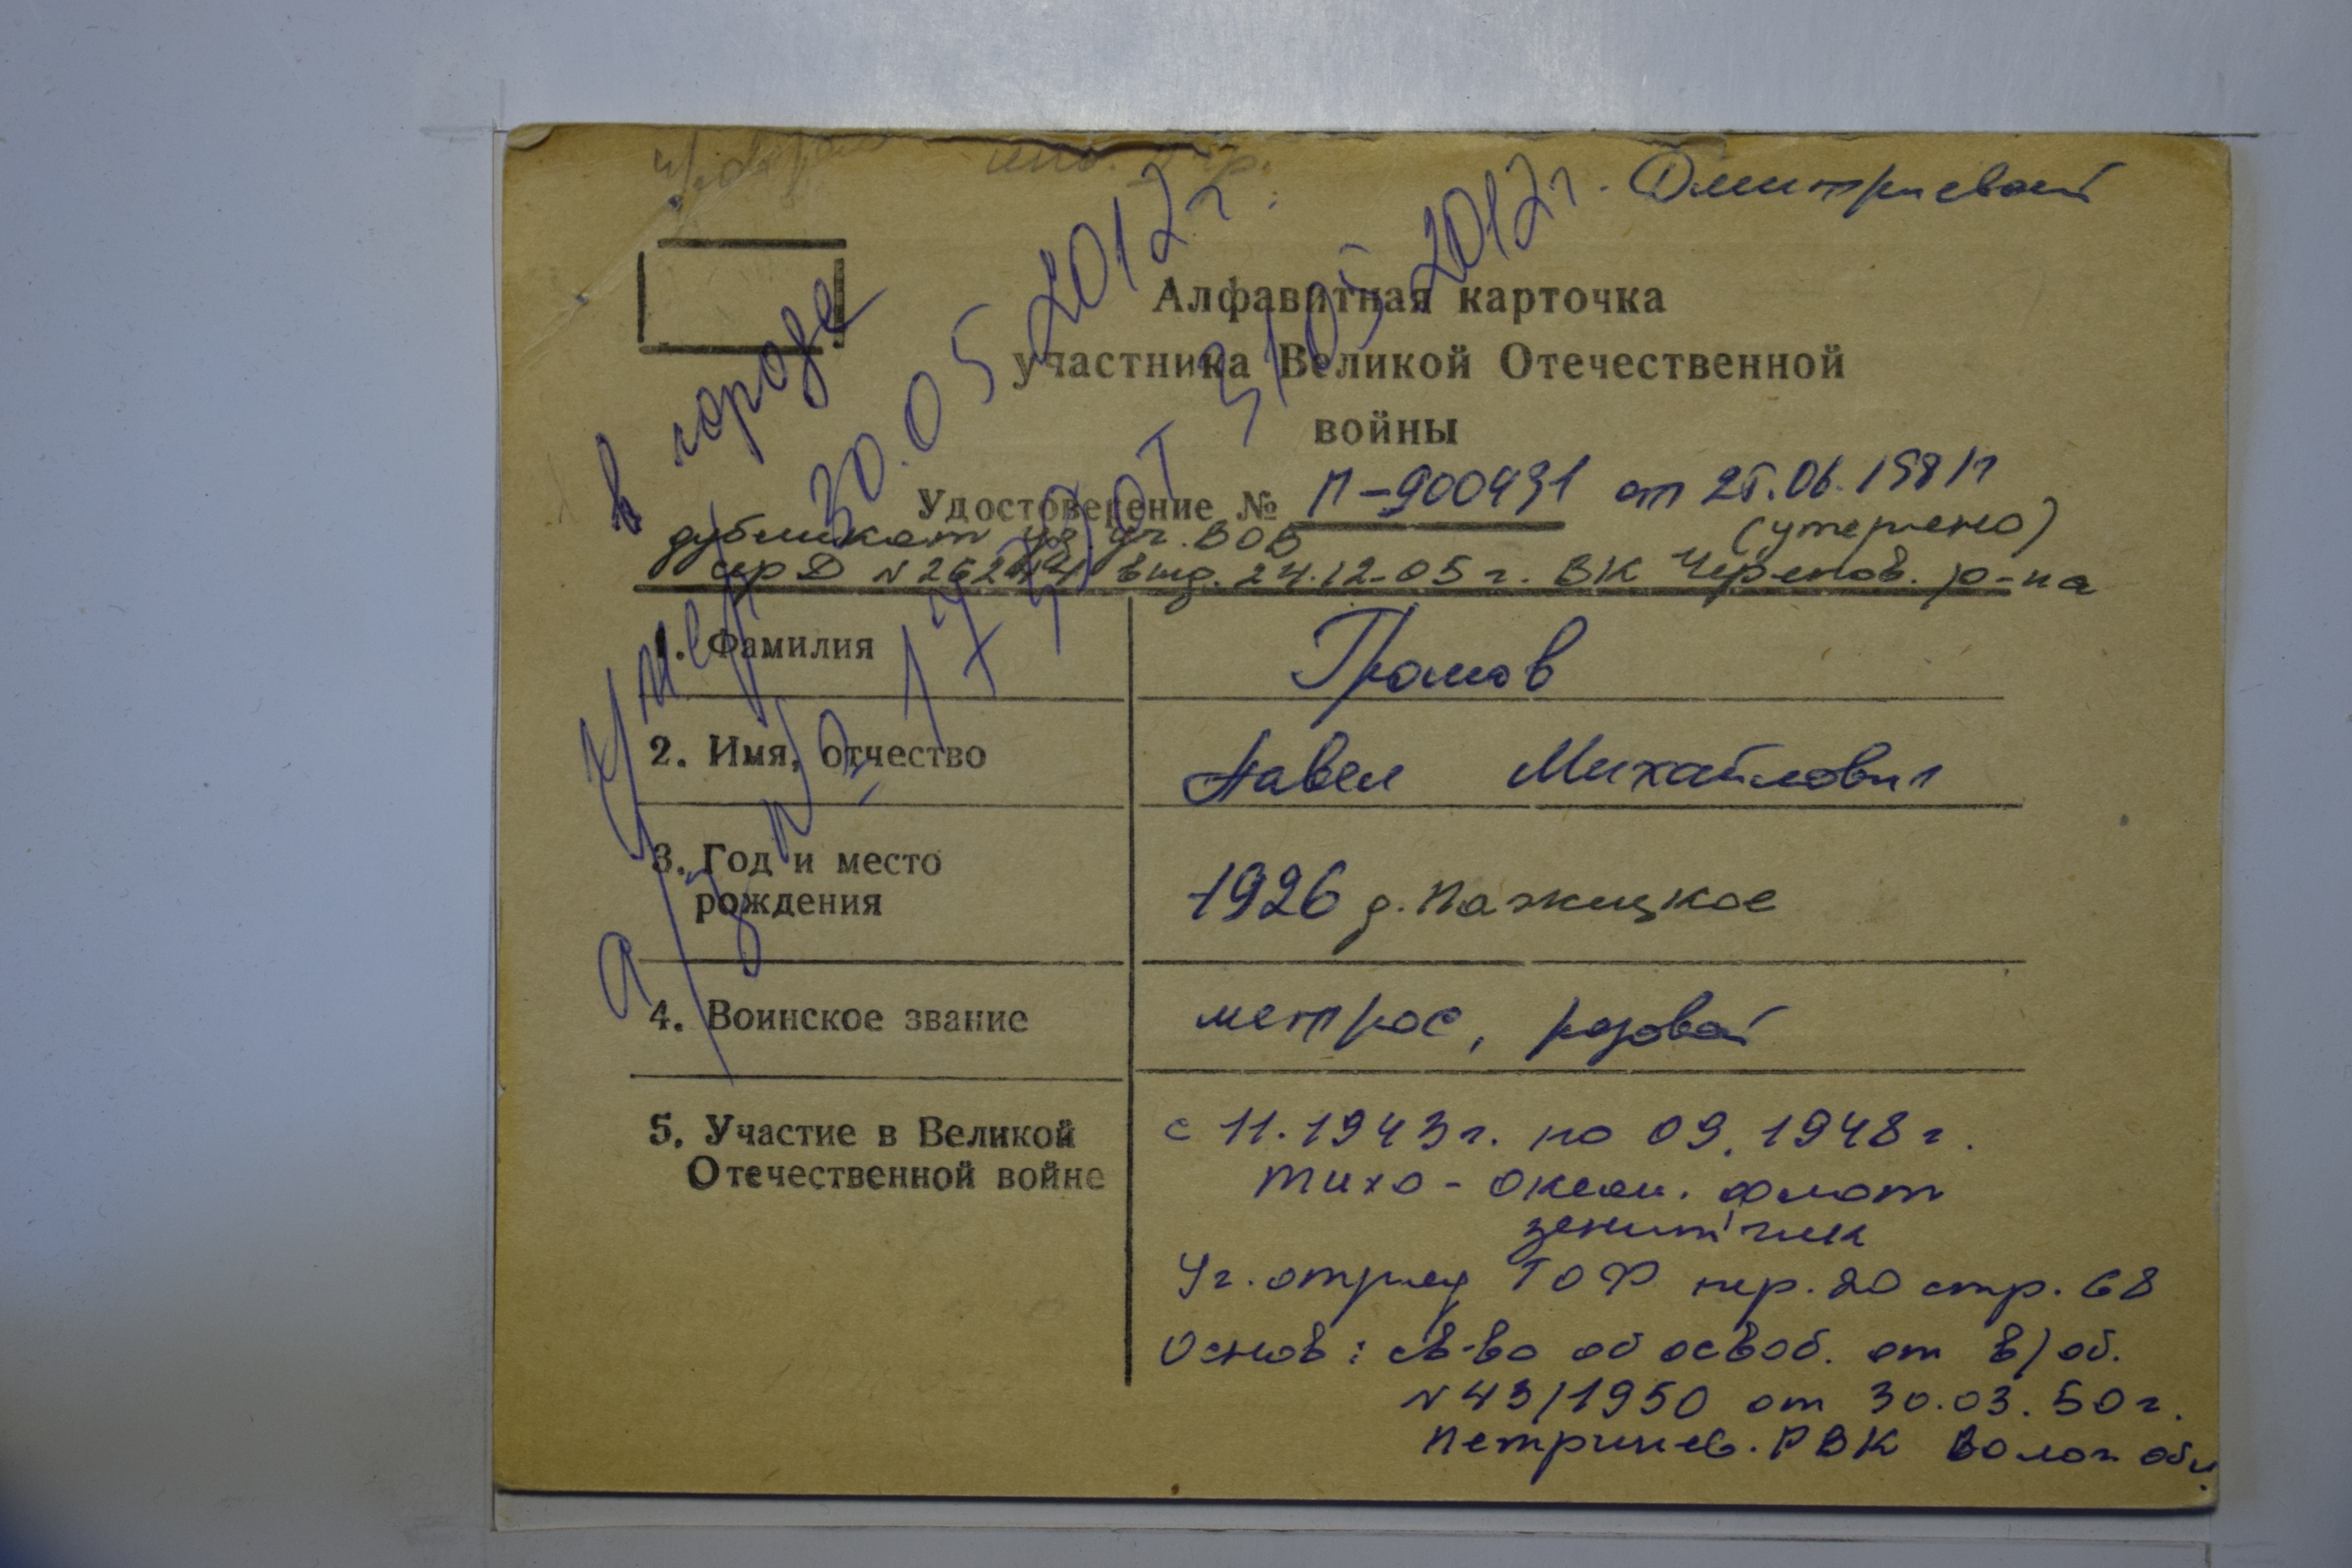 Дмитриевой
Алфавитная карточка
участника Великой Отечественной
войны
Удостоверение № П-900431 от 25.06.1981г
(утеряно)
дубликат уд. уч. ВОВ
сер Д № выд. 24.12-05г. ВК Черепов. р-на
1. Фамилия Громов
2. Имя, отчество Павел Михайлович
3. Год и место 1926 д. Пажецкое
рождения
4. Воинское звание матрос, рядовой
5. Участие в Великой с 11.1943г. по 09.1948г.
Отечественной войне Тихо-океан. флот
зенитчик
Уг. отряд ТОФ пер. 20 стр. 68
Основ: св-во об освоб. от в/об.
№ 43/1950 от 30.03.50г.
Петринев. РВК Волог. обл.
в городе
Умер 30.05.2012г.
а/з № от 31.05.2012г.